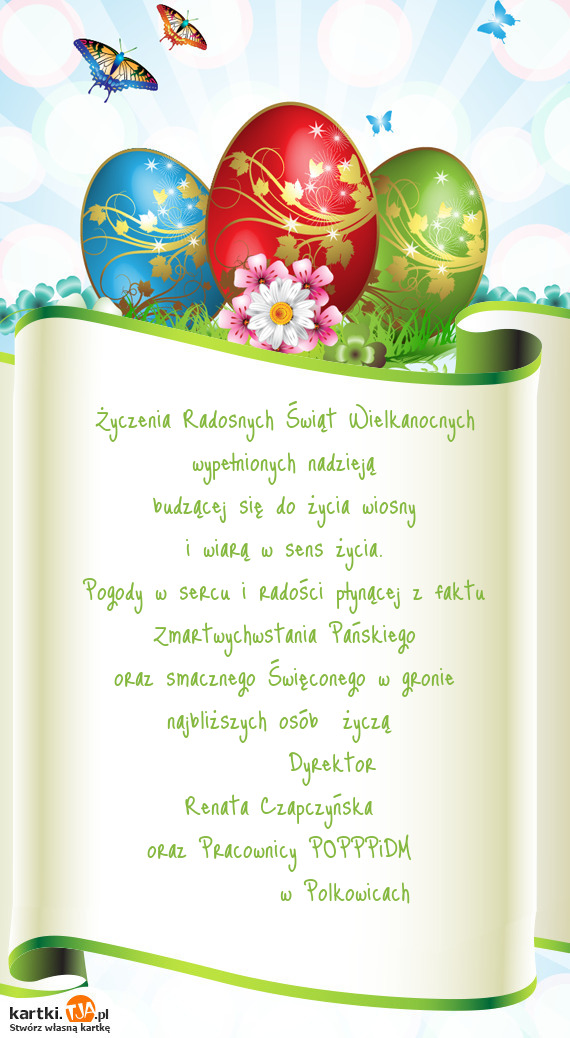 Życzenia Radosnych Świąt Wielkanocnych
wypełnionych nadzieją
budzącej się do życia wiosny
i wiarą w sens życia.
Pogody w sercu i radości płynącej z faktu
Zmartwychwstania Pańskiego
oraz smacznego Święconego w gronie
najbliższych osób życzą
Dyrektor
Renata Czapczyńska
oraz Pracownicy POPPPiDM
w Polkowicach
kartki.TJA.pl
Stwórz własną kartkę